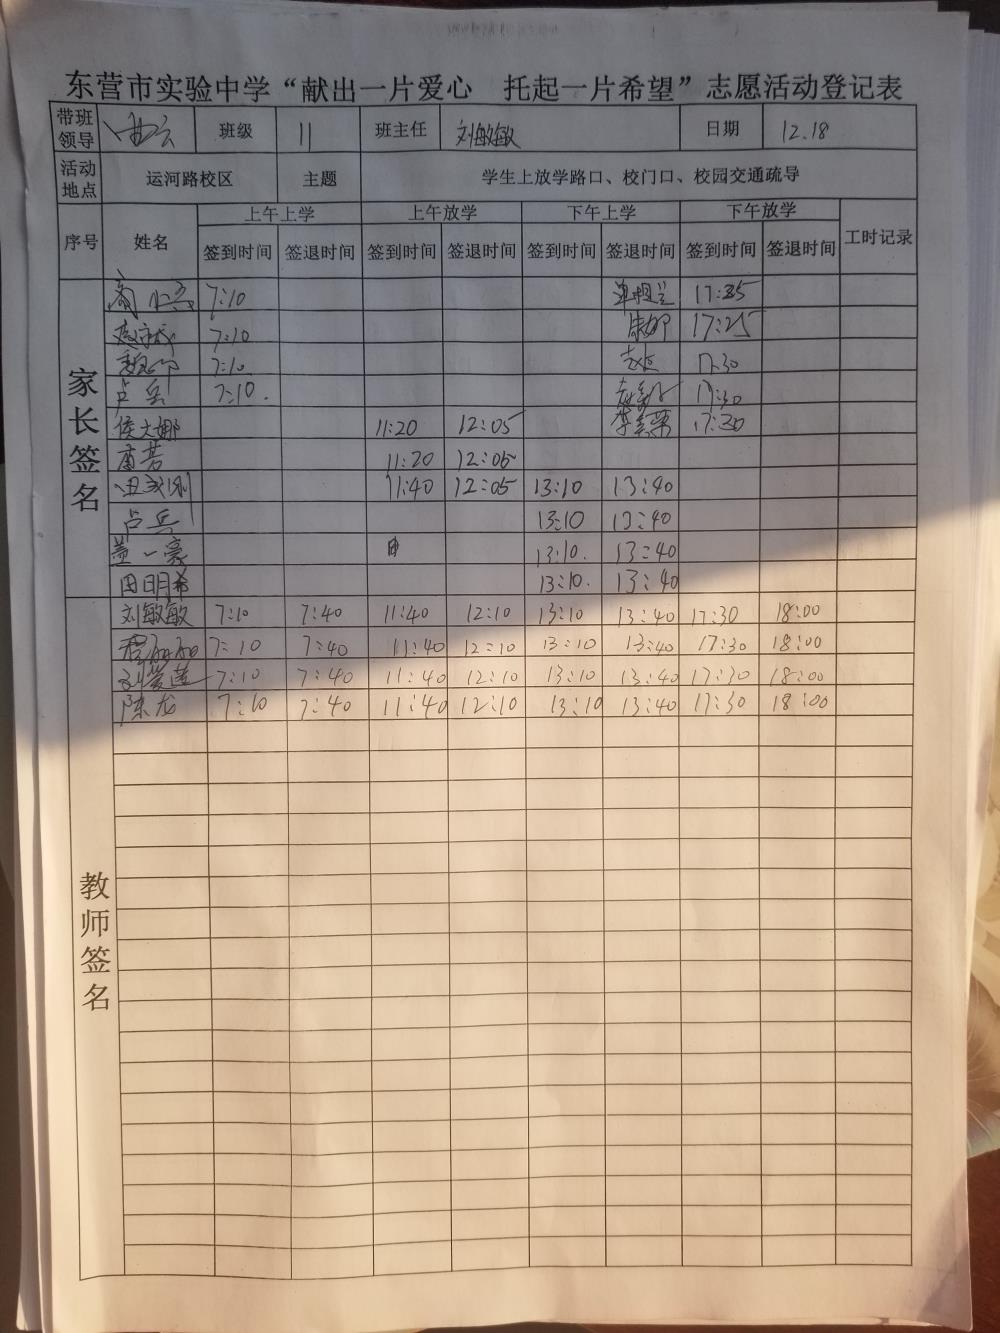 东营市实验中学“献出一片爱心 托起一片希望”志愿活动登记表
带班领导 班级 11 班主任 刘敏敏 日期 12.18
活动地点 运河路校区 主题 学生上放学路口、校门口、校园交通疏导
序号 姓名 上午上学 上午放学 下午上学 下午放学 工时记录
签到时间 签退时间 签到时间 签退时间 签到时间 签退时间 签到时间 签退时间
家长签名
7:10 17:35
7:10 17:25
7:10 17:30
卢兵 7:10. 17:30
侯文娜 11:20 12:05 李美荣 17:30
11:20 12:05
11:40 12:05 13:10 13:40
卢兵 13:10 13:40
盖一豪 13:10. 13:40
田明 13:10. 13:40
教师签名
刘敏敏 7:10 7:40 11:40 12:10 13:10 13:40 17:30 18:00
7:10 7:40 11:40 12:10 13:10 13:40 17:30 18:00
刘爱莲 7:10 7:40 11:40 12:10 13:10 13:40 17:30 18:00
陈龙 7:10 7:40 11:40 12:10 13:10 13:40 17:30 18:00